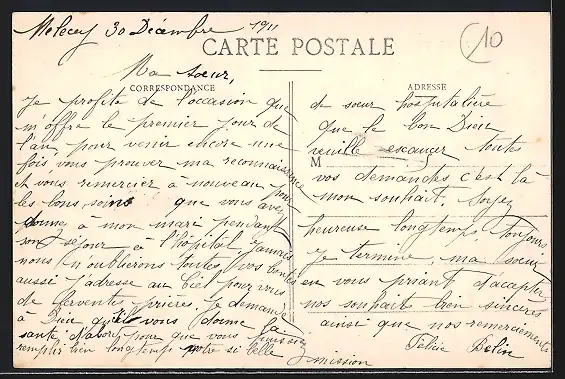 Melecey 30 Décembre 1911
10
CARTE POSTALE
Ma sœur,
CORRESPONDANCE
Je profite de l'occasion que
m'offre le premier jour de
l'an pour venir encore une
fois vous prouver ma reconnaissance
et vous remercier à nouveau pour
les bons soins que vous avez
donner à mon mari pendant
son séjour à l'hôpital Jamais
nous n'oublierons toutes vos bontés
aussi j'adresse au ciel pour vous
de ferventes prières je demande
à Dieu qu'il vous donne la
santé d'abord pour que vous puissiez
remplir bien longtemps votre si belle
mission
ADRESSE
de sœur hospitalière
que le bon Dieu
veuille exaucer toutes
M
vos demandes c'est là
mon souhait. Soyez
heureuse longtemps toujours
Je termine, ma sœur
en vous priant d'accepter
nos souhaits bien sincères
ainsi que nos remerciements
Félicie Belin